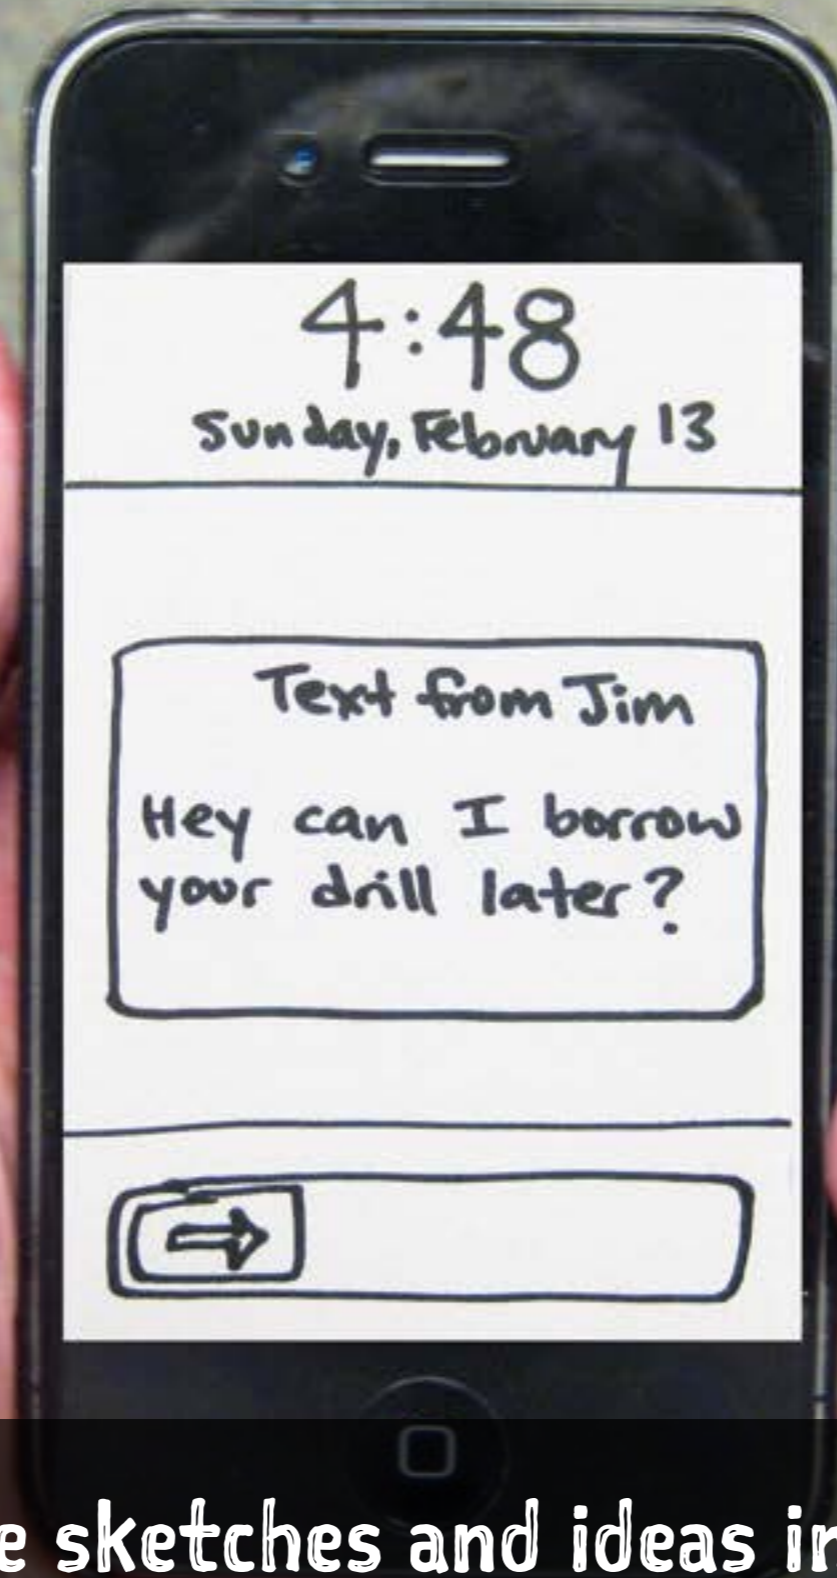 4:48
Sunday, February 13
Text from Jim
Hey can I borrow
your drill later?
sketches and ideas